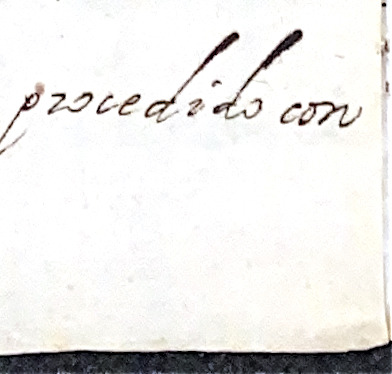 procedido con